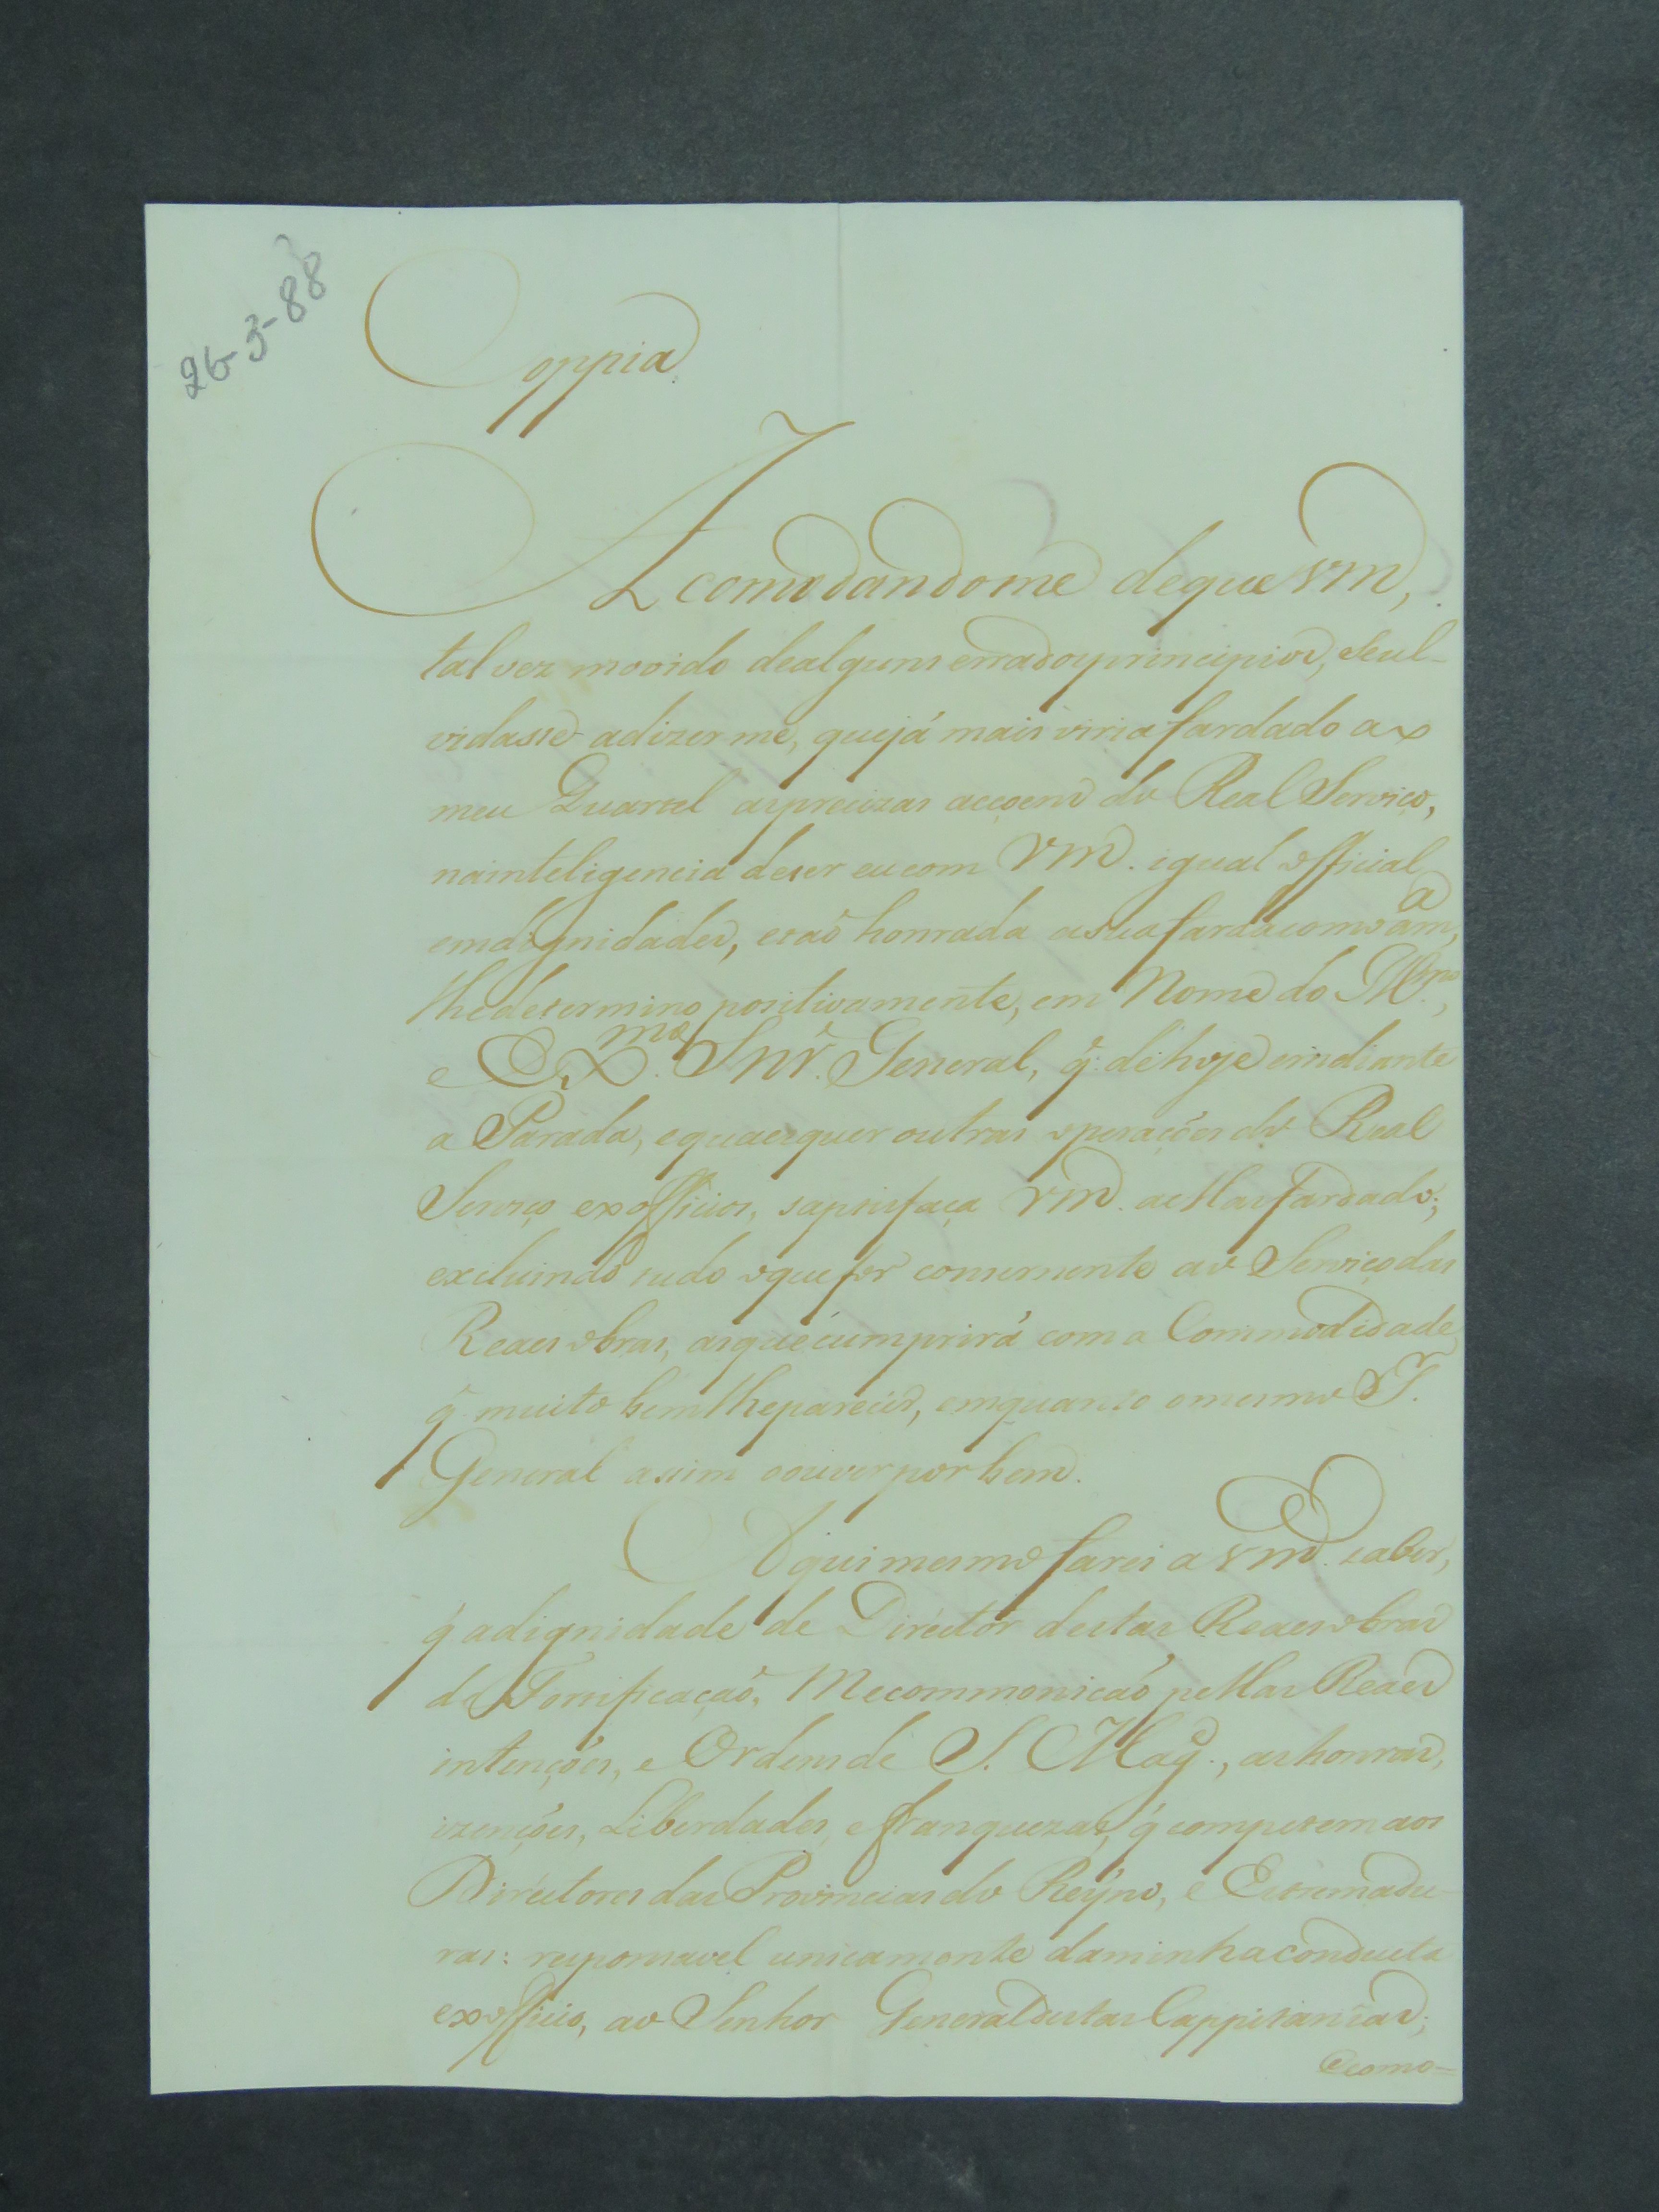 26-3-88
Coppia
Acomodandome deque vm,
tal vez movido dealguns erradosprincipios, seul-
vidasse adizerme, quejá mais viria fardado ao
meu Quartel asprecizas accoens do Real Serviço,
nainteligencia deser eucom Vm. igual official
emdignidades, etaõ honrada asuafardacomo am.ª,
lhedetermino positivamente, em Nome do Ill.mo,
e Ex.mo Snr. General, q̃ dehoje emdiante
a Parada, equaesquer outras operações do Real
Serviço exofficios, satisfaça Vm. aellas fardado;
excluindo tudo oquefor concernente ao Serviçodas
Reaes obras, asquecumprirá com a Commodidade
q̃ muito bemlheparecer, emquanto omesmo S.r
General assim ouverpor bem.
Aquimesmo farei a Vm. saber,
q̃ adignidade de Director destas Reaes obras
da Fortificaçaõ, Mecommonicaõ pellas Reaes
intenções, e Ordens de S. Mag.e, ashonras,
izenções, Liberdades, efranquezas, q̃ competem aos
Directores das Provincias do Reyno, e Estremadu-
ras: responsavel unicamente daminhaconducta
exofficio, ao Senhor General destas Cappitanias;
Ecomo=